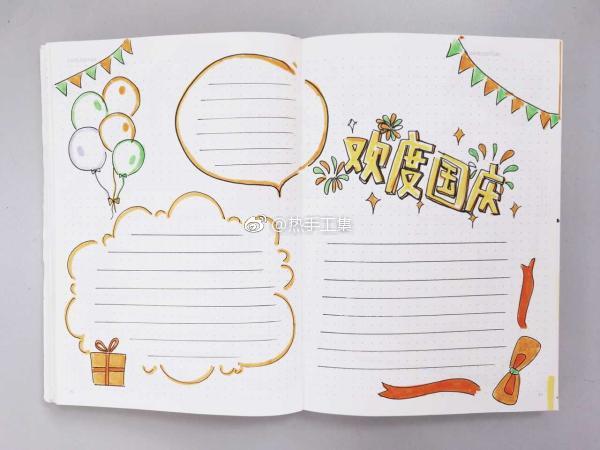 欢度国庆
@热手工集